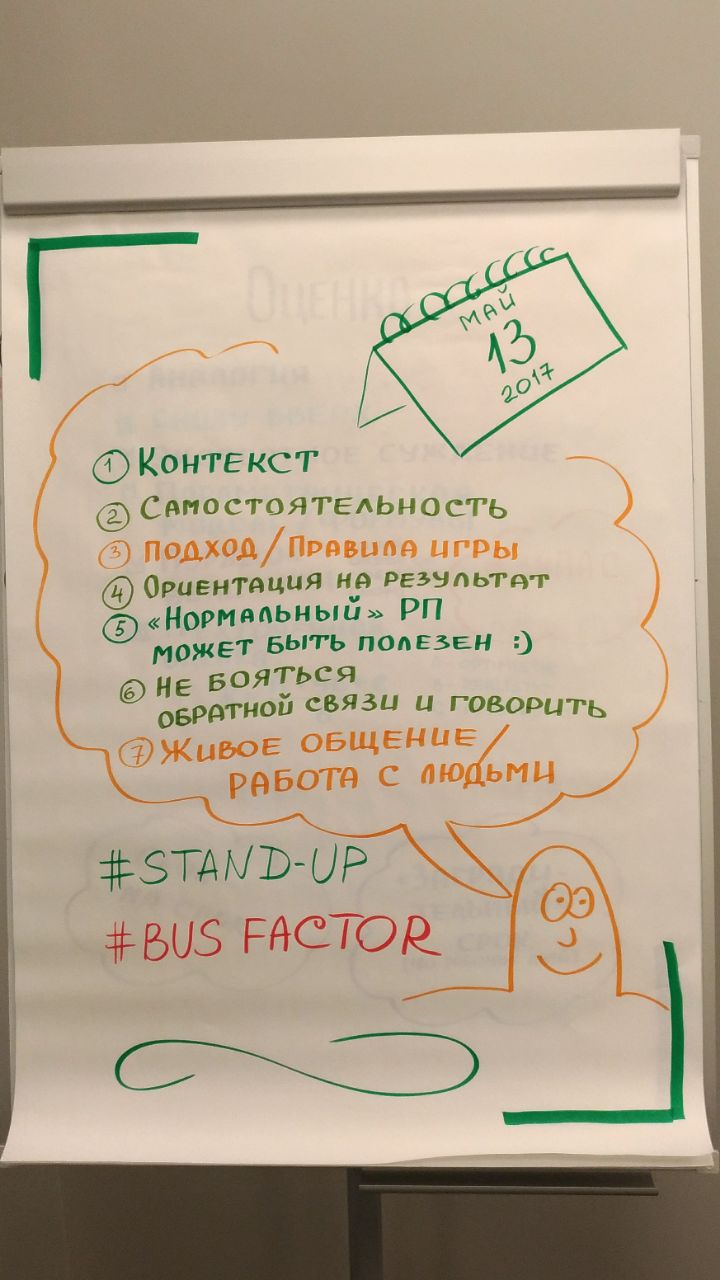 МАЙ
13
2017
1 КОНТЕКСТ
2 САМОСТОЯТЕЛЬНОСТЬ
3 ПОДХОД/ПРАВИЛА ИГРЫ
4 ОРИЕНТАЦИЯ НА РЕЗУЛЬТАТ
5 «НОРМАЛЬНЫЙ» РП
МОЖЕТ БЫТЬ ПОЛЕЗЕН :)
6 НЕ БОЯТЬСЯ
ОБРАТНОЙ СВЯЗИ И ГОВОРИТЬ
7 ЖИВОЕ ОБЩЕНИЕ/
РАБОТА С ЛЮДЬМИ
#STAND-UP
#BUS FACTOR